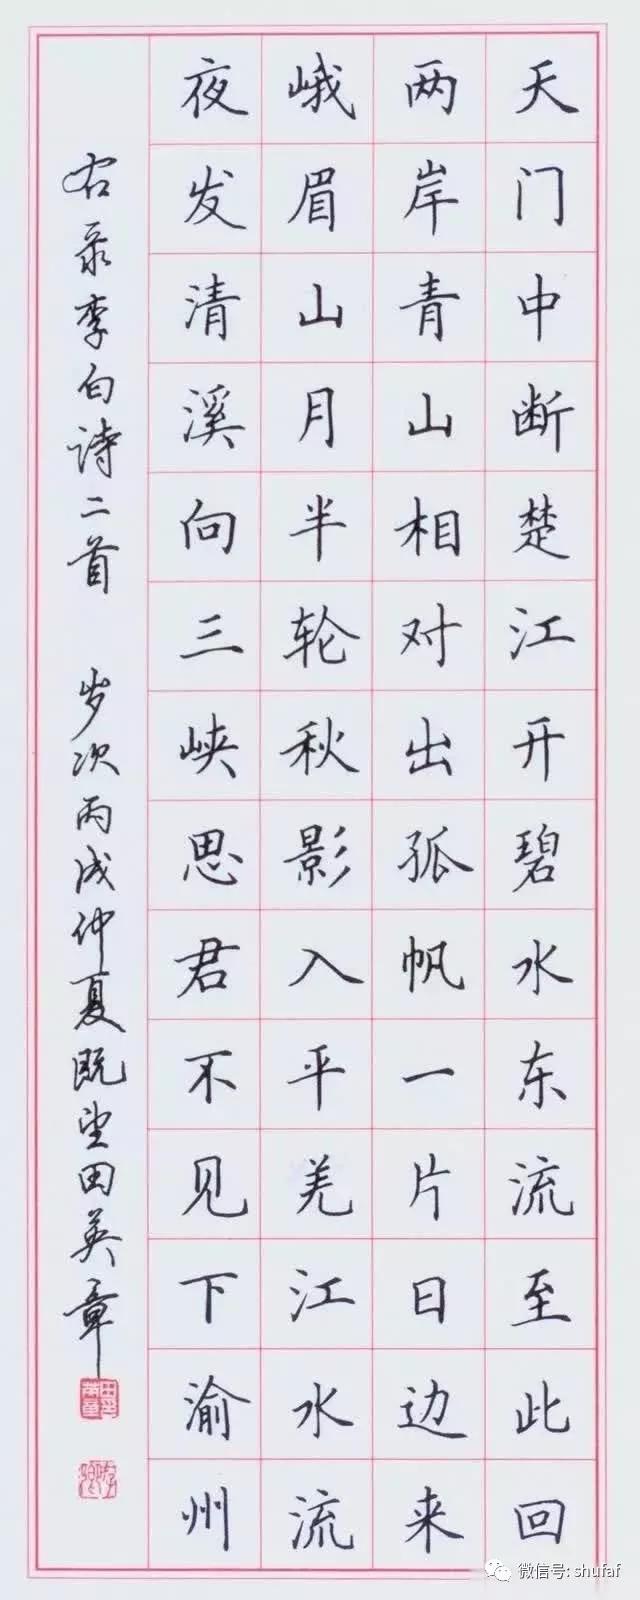 天门中断楚江开碧水东流至此回
两岸青山相对出孤帆一片日边来
峨眉山月半轮秋影入平羌江水流
夜发清溪向三峡思君不见下渝州
右录李白诗二首 岁次丙戌仲夏既望田英章
微信号: shufaf